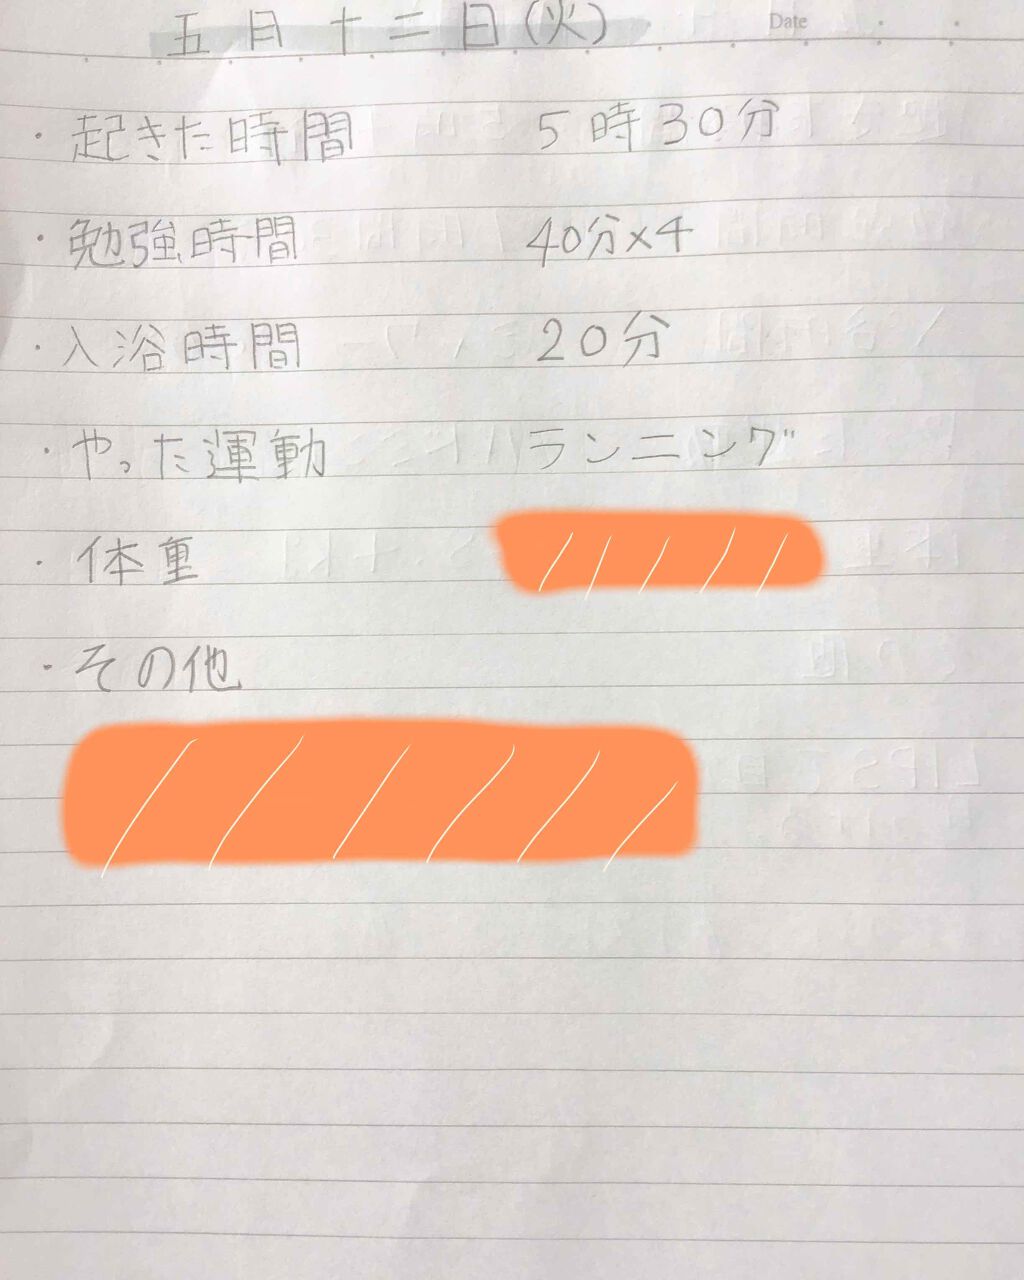 五月十二日(火) Date
・起きた時間 5時30分
・勉強時間 40分×4
・入浴時間 20分
・やった運動 ランニング
・体重
・その他